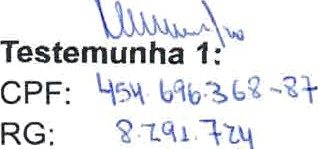 Testemunha 1:
CPF: 454.696.368-87
RG: 8.291.724